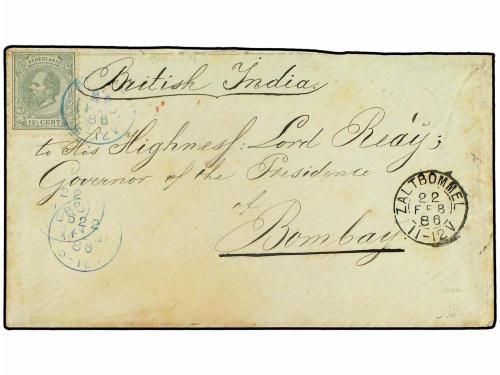 NEDERLAND
12½ CENT
British India.
to His Highness: Lord Reay;
Governor of the Presidence
of
Bombay.
ZALTBOMMEL
22
FEB
86
11-12V
86
86